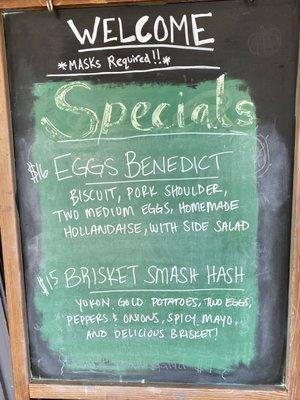 WELCOME
*MASKS Required!!*
Specials
$16 EGGS BENEDICT
BISCUIT, PORK SHOULDER,
TWO MEDIUM EGGS, HOMEMADE
HOLLANDAISE, WITH SIDE SALAD
$15 BRISKET SMASH HASH
YUKON GOLD POTATOES, TWO EGGS,
PEPPERS & ONIONS, SPICY MAYO,
AND DELICIOUS BRISKET!